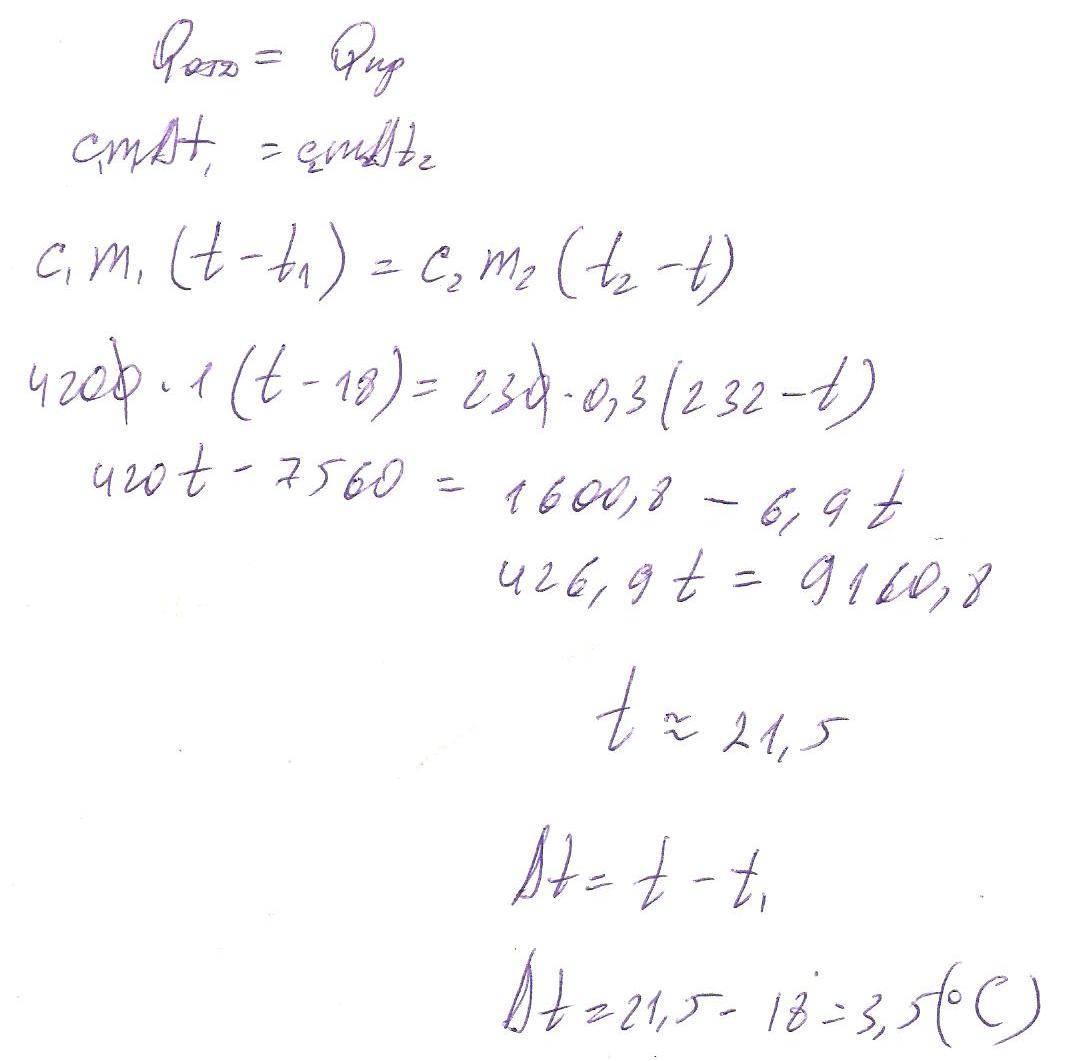 Qотд = Qпр
c₁m₁Δt₁ = c₂m₂Δt₂
c₁m₁(t-t₁) = c₂m₂(t₂-t)
4200·1(t-18) = 230·0,3(232-t)
420t - 7560 = 1600,8 - 6,9t
426,9t = 9160,8
t ≈ 21,5
Δt = t - t₁
Δt = 21,5 - 18 = 3,5(°C)